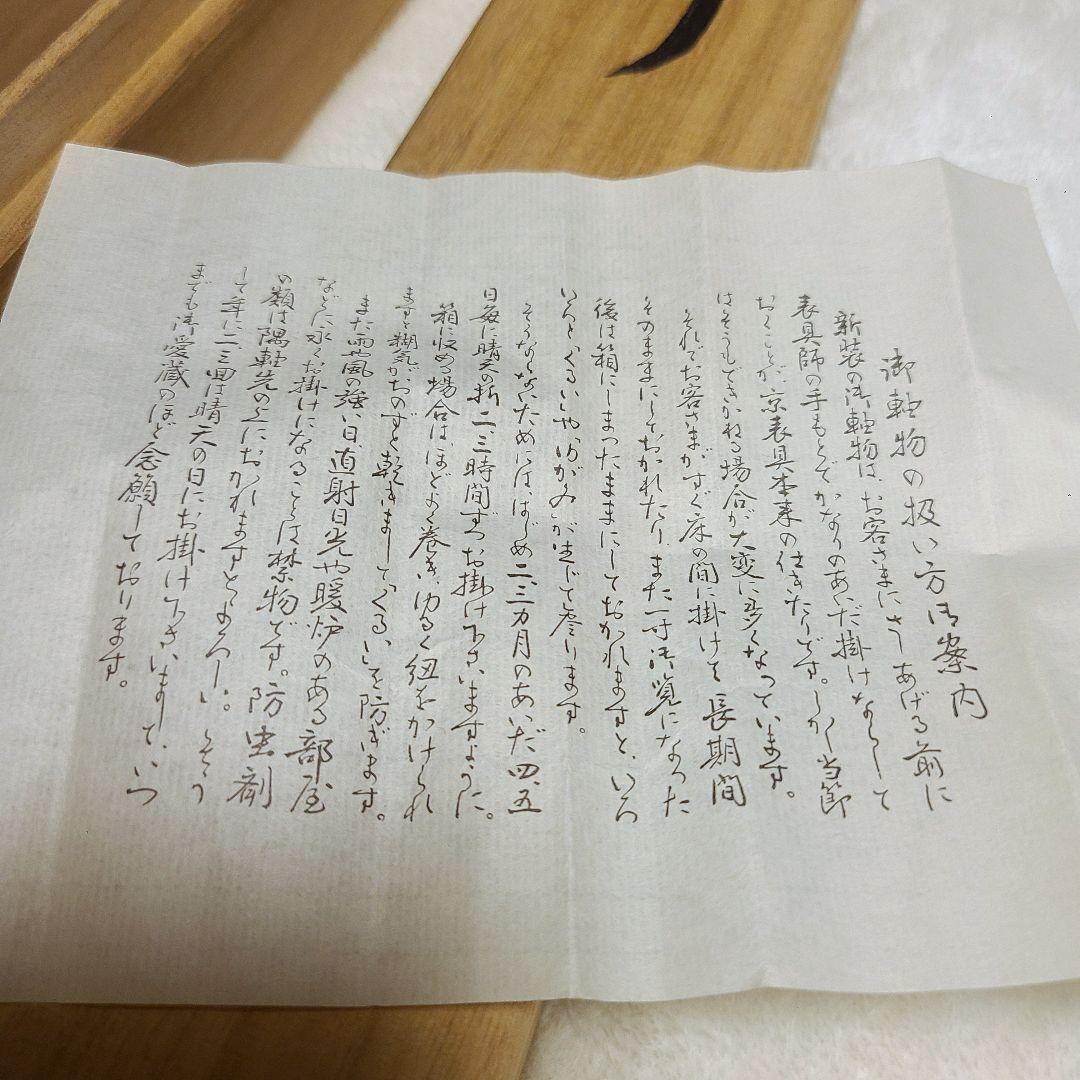 御軸物の扱い方御案内
新装の御軸物は、お客さまにさしあげる前に
表具師の手もとでかなりのあいだ掛けならして
おくことが、京表具本来の仕きたりです。しかし当節
はそうもできかねる場合が大変に多くなっています。
それでお客さまがすぐ床の間に掛けて長期間
そのままにしておかれたり、また一寸御覧になった
後は箱にしまったままにしておかれますと、いろ
いろと、くるいしや、ゆがみ、が生じて参ります。
そうならないためには、はじめ二、三カ月のあいだ四、五
日毎に晴天の折、二、三時間ずつお掛け下さいますように。
箱に収める場合は、ほどよく巻き、ゆるく紐をかけられ
ますと糊気がおのずと乾きまして、くるい、を防ぎます。
また雨や風の強い日、直射日光や暖炉のある部屋
などに永くお掛けになることは禁物です。防虫剤
の類は隅軸先の上におかれますとよろしい。そう
して年に二、三回は晴天の日にお掛け下さいまして、いつ
までも御愛蔵のほど念願しております。